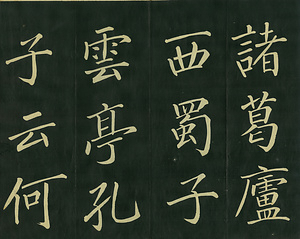 諸葛廬
西蜀子
雲亭孔
子云何